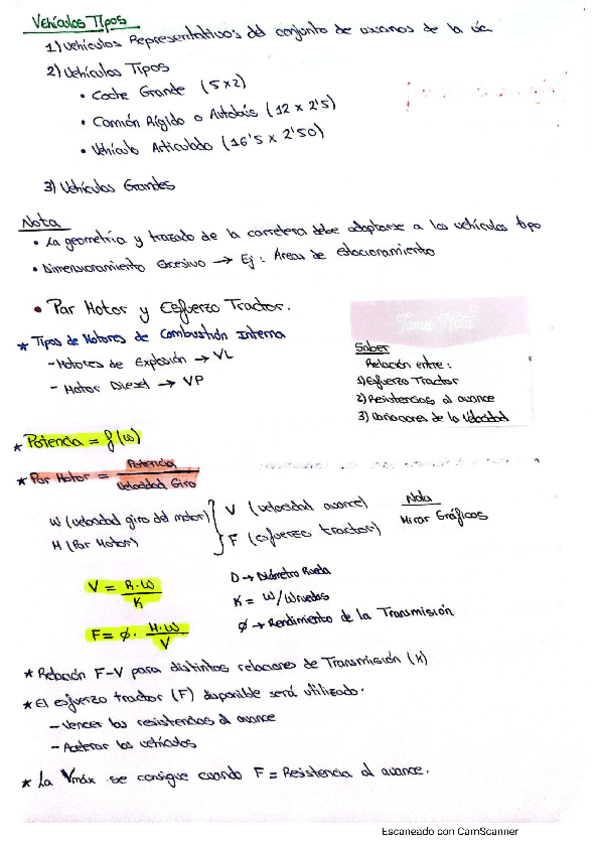 Vehículos Tipos
1) Vehículos Representativos del conjunto de usuarios de la vía
2) Vehículos Tipos
• Coche Grande (5x2)
• Camión Rígido o Autobús (12 x 2'5)
• Vehículo Articulado (16'5 x 2'50)
3) Vehículos Grandes
Nota
• La geometría y trazado de la carretera debe adaptarse a los vehículos tipo
• Dimensionamiento Excesivo → Ej: Áreas de estacionamiento
• Par Motor y Esfuerzo Tractor.
* Tipos de Motores de Combustión Interna
- Motores de Explosión → VL
- Motor Diesel → VP
Toma Nota
Saber
Relación entre:
1) Esfuerzo Tractor
2) Resistencias al avance
3) Variaciones de la Velocidad
* Potencia = f(w)
* Par Motor = Potencia / Velocidad Giro
W (velocidad giro del motor) } V (velocidad avance)
M (Par Motor) } F (esfuerzo tractor)
Nota
Mirar Gráficos
V = R·W / K
F = ø · M·W / V
D → Diámetro Rueda
K = W/Wruedas
ø → Rendimiento de la Transmisión
* Relación F-V para distintas relaciones de Transmisión (K)
* El esfuerzo tractor (F) disponible será utilizado:
- Vencer las resistencias al avance
- Acelerar los vehículos
* La Vmáx se consigue cuando F = Resistencia al avance.
Escaneado con CamScanner